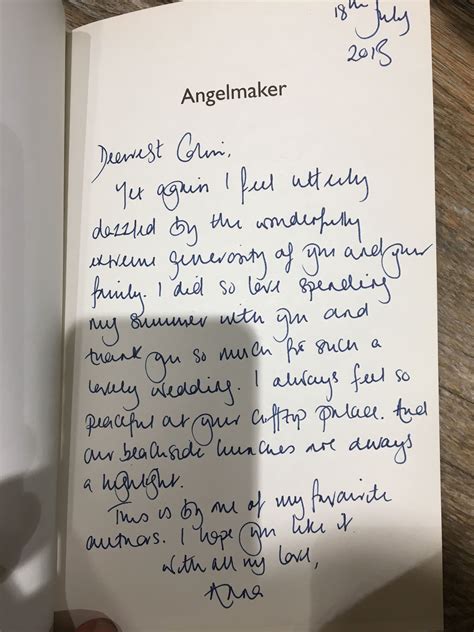 18th July
2015
Angelmaker
Dearest Colin,
Yet again I feel utterly
dazzled by the wonderfully
extreme generosity of you and your
family. I did so love spending
my summer with you and
thank you so much for such a
lovely wedding. I always feel so
peaceful at your clifftop palace. And
our beachside lunches are always
a highlight.
This is by one of my favourite
authors. I hope you like it.
With all my love,
Anna